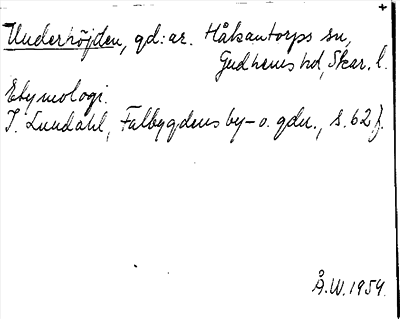 +
Underhöjden, gd:ar. Håkantorps sn,
Gudhems hd, Skar. l.
Etymologi.
I. Lundahl, Falbygdens by- o. gdn., s. 62 f.
Å.W. 1954.